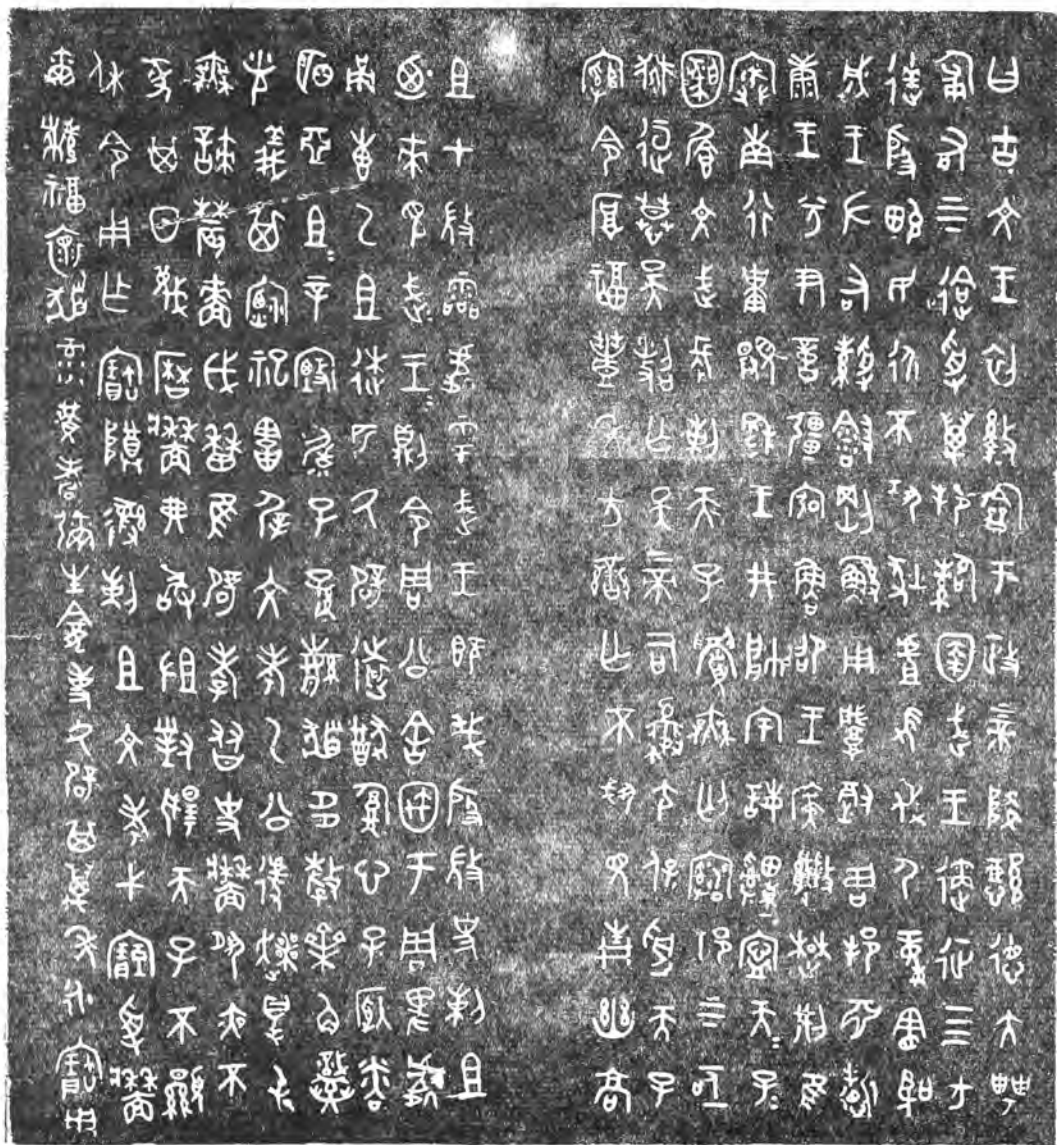 曰古文王初盭龢于政上帝降懿德大甹
匍有上下迨受萬邦䚄圉武王遹征四方
達殷畯民永不巩狄虘髟伐尸童憲聖
成王左右綬剛鯀用肇徹周邦淵哲
康王兮尹億彊宖魯卲王廣楚荊隹
南行祗顯穆王井帥宇誨申寧天子天子
文武長剌天子眉無匄祁上下亟
逗慕昊照亡斁上帝司夔尤保受天子
綰令厚福豐年方蠻亡不見青幽高
且甲微靈處雩武王既殷微史剌且
迺來見武王武王則令周公舍于周卑處
甬惠乙且匹氒辟遠猷腹心子
明亞且且辛毓子孫繁多孷角熾
光義其禋祀害屖文考乙公遽爽得屯
無諫農嗇戉曆隹辟孝友史牆夙夜不
墜其日蔑曆牆弗敢沮對揚天子不顯
休令用乍寶尊彝剌且文考弋受牆
爾福懷彔黃耇彌生龕事氒辟其萬年永寶用